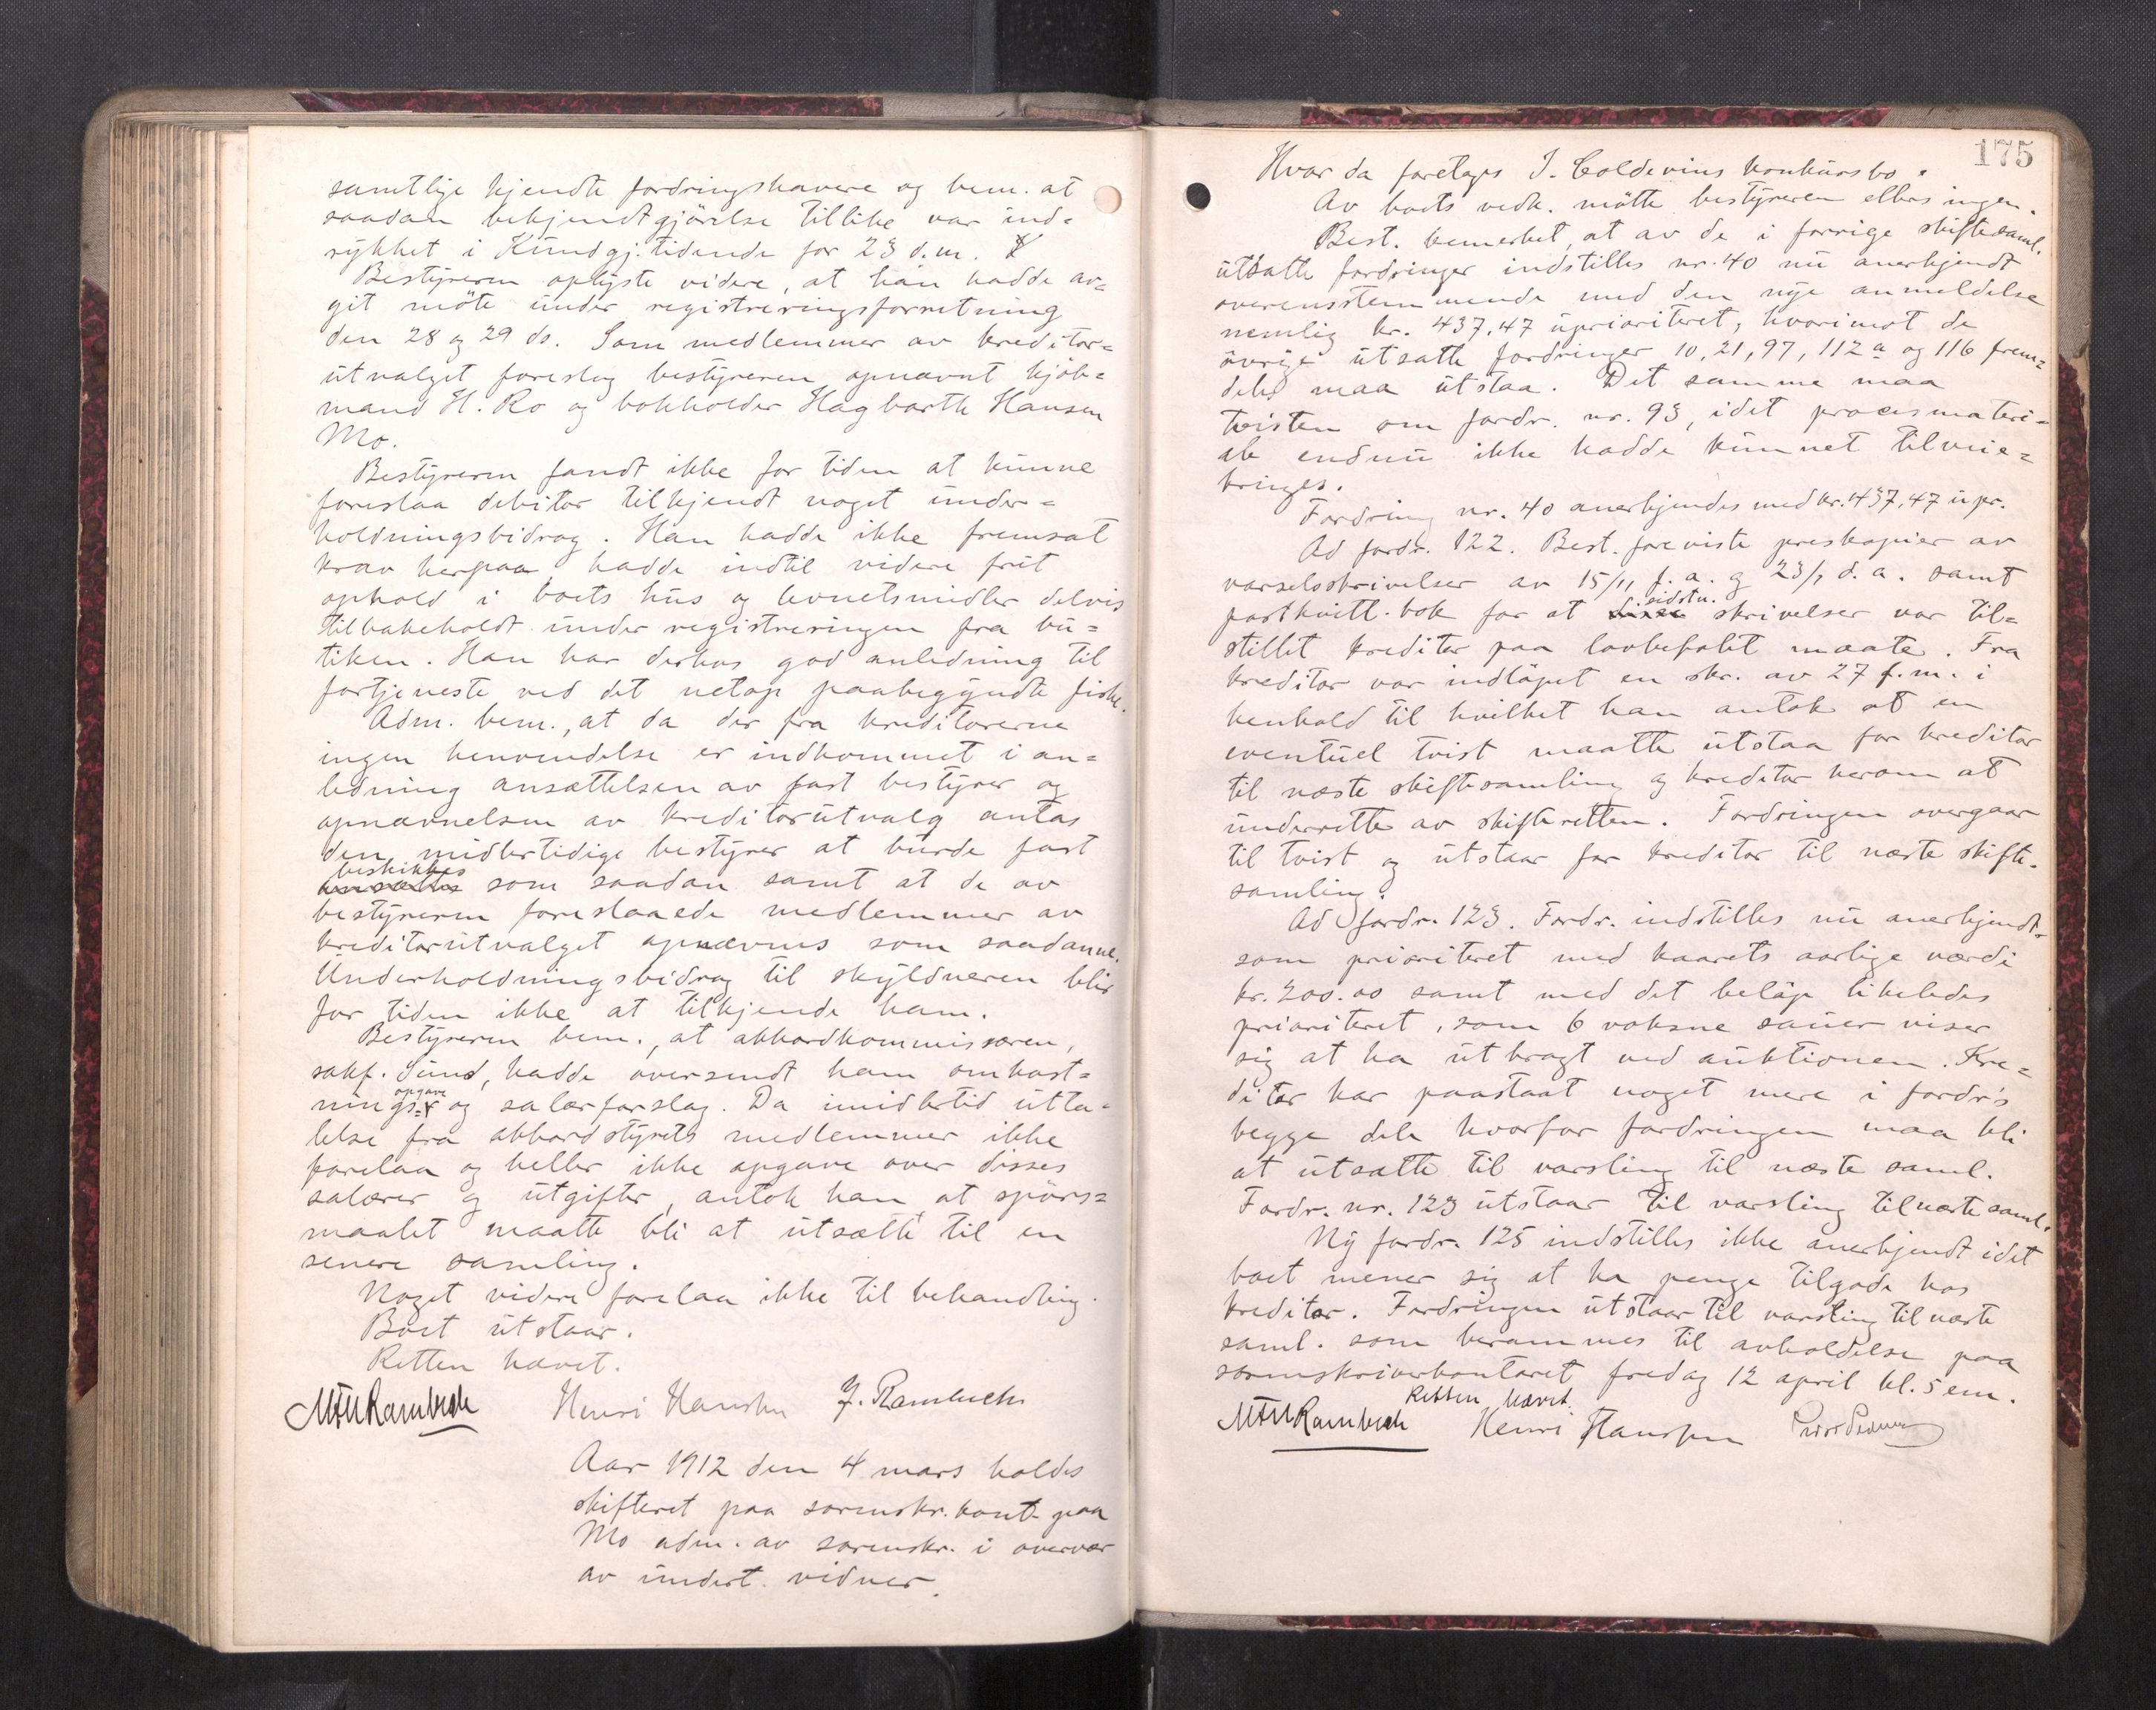 samtlige kjendte fordringshavere og bem. at
saadan bekjendtgjörelse tillike var ind-
rykket i Kundgj.tidende for 23 d.m.
Bestyreren oplyste videre, at han hadde av-
git möte under registreringsforretning
den 28 og 29 ds. Som medlemmer av kreditor-
utvalget foreslog bestyreren opnævnt kjöb-
mand H. Ro og bokholder Hagbarth Hansen
Mo.
Bestyreren fandt ikke for tiden at kunne
foreslaa debitor tilkjendt noget under-
holdningsbidrag. Han hadde ikke fremsat
krav herpaa, hadde indtil videre frit
ophold i boets hus og levnetsmidler delvis
tilbakeholdt under registreringen fra bu-
tiken. Han har derhos god anledning til
fortjeneste ved det netop paabegyndte fiske.
Adm. bem., at da der fra kreditorerne
ingen henvendelse er indkommet i an-
ledning ansættelsen av fast bestyrer og
opnævnelsen av kreditorutvalg antas
den midlertidige bestyrer at burde fast
beskikkes
ansættes som saadan samt at de av
bestyreren foreslaaede medlemmer av
kreditorutvalget opnævnes som saadanne.
Underholdningsbidrag til skyldneren blir
for tiden ikke at tilkjende ham.
Bestyreren bem., at akkordkommissæren,
sakf. Sund, hadde oversendt ham omkost-
opgave
nings- og salærforslag. Da imidlertid utta-
lelse fra akkordstyrets medlemmer ikke
forelaa og heller ikke opgave over disses
salærer og utgifter, antok han at spörs-
maalet maatte bli at utsætte til en
senere samling.
Noget videre forelaa ikke til behandling.
Boet utstaar.
Retten hævet.
MFURambech Henri Hansen J. Rambech
Aar 1912 den 4 mars holdes
skifteret paa sorenskr.kont. paa
Mo adm. av sorenskr. i overvær
av undert. vidner.
175
Hvor da foretages I. Coldevins konkursbo.
Av boets vedk. mötte bestyreren ellers ingen.
Best. bemerket, at av de i forrige skiftesaml.
utsatte fordringer indstilles nr. 40 nu anerkjendt
overensstemmende med den nye anmeldelse
nemlig kr. 437.47 uprioriteret, hvorimot de
övrige utsatte fordringer 10, 21, 97, 112 a og 116 frem-
deles maa utstaa. Det samme maa
tvisten om fordr. nr. 93, idet procesmateri-
ale endnu ikke hadde kunnet tilveie-
bringes.
Fordring nr. 40 anerkjendes med kr. 437,47 upr.
Ad fordr. 122. Best. foreviste preskopier av
varselsskrivelser av 15/11 f.a. og 23/1 d.a. samt
sidstn.
postkvitt.bok for at disse skrivelser var til-
stillet kreditor paa lovbefalt maate. Fra
kreditor var indlöpet en skr. av 27 f.m. i
henhold til hvilket han antok at en
eventuel tvist maatte utstaa for kreditor
til næste skiftesamling og kreditor herom at
underrette av skifteretten. Fordringen overgaar
til tvist og utstaar for kreditor til næste skifte-
samling.
Ad fordr. 123. Fordr. indstilles nu anerkjendt
som prioriteret med kaarets aarlige værdi
kr. 200.00 samt med det belöp likeledes
prioriteret, som 6 voksne sauer viser
sig at ha utbragt ved auktionen. Kre-
ditor har paastaat noget mere i fordr's
begge dele hvorfor fordringen maa bli
at utsætte til varsling til næste saml.
Fordr. nr. 123 utstaar til varsling til næste saml.
Ny fordr. 125 indstilles ikke anerkjendt idet
boet mener sig at ha penge tilgode hos
kreditor. Fordringen utstaar til varsling til næste
saml. som berammes til avholdelse paa
sorenskriverkontoret fredag 12 april kl. 5 em.
Retten hævet.
MFURambech Henri Hansen